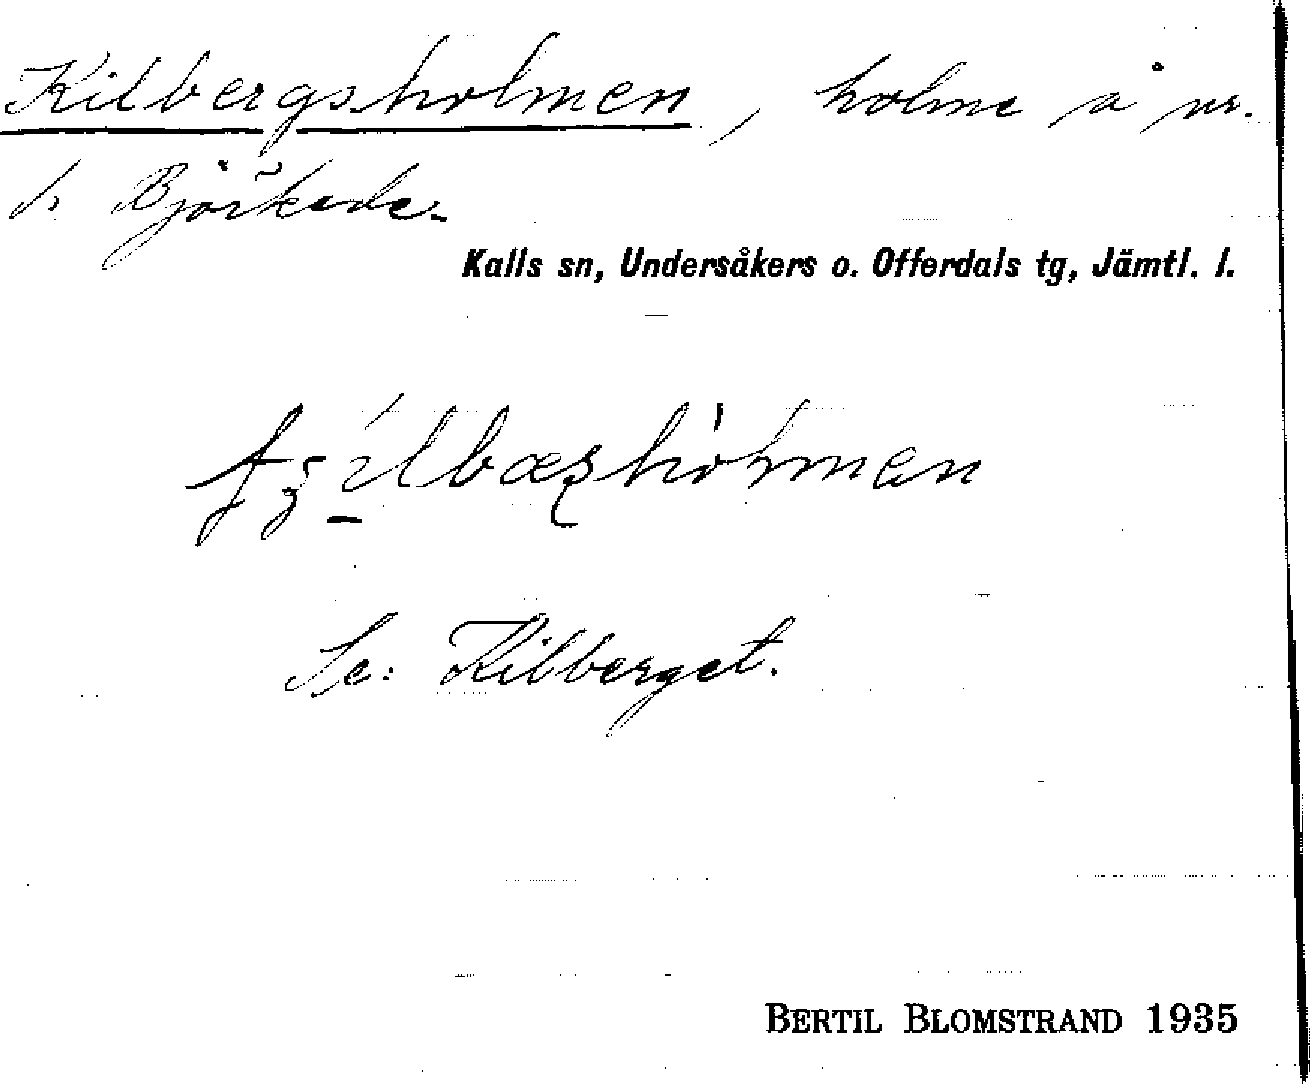 Kilbergsholmen, holme å nr.
s. Björkede.
Kalls sn, Undersåkers o. Offerdals tg, Jämtl. l.
Se: Kilberget.
BERTIL BLOMSTRAND 1935